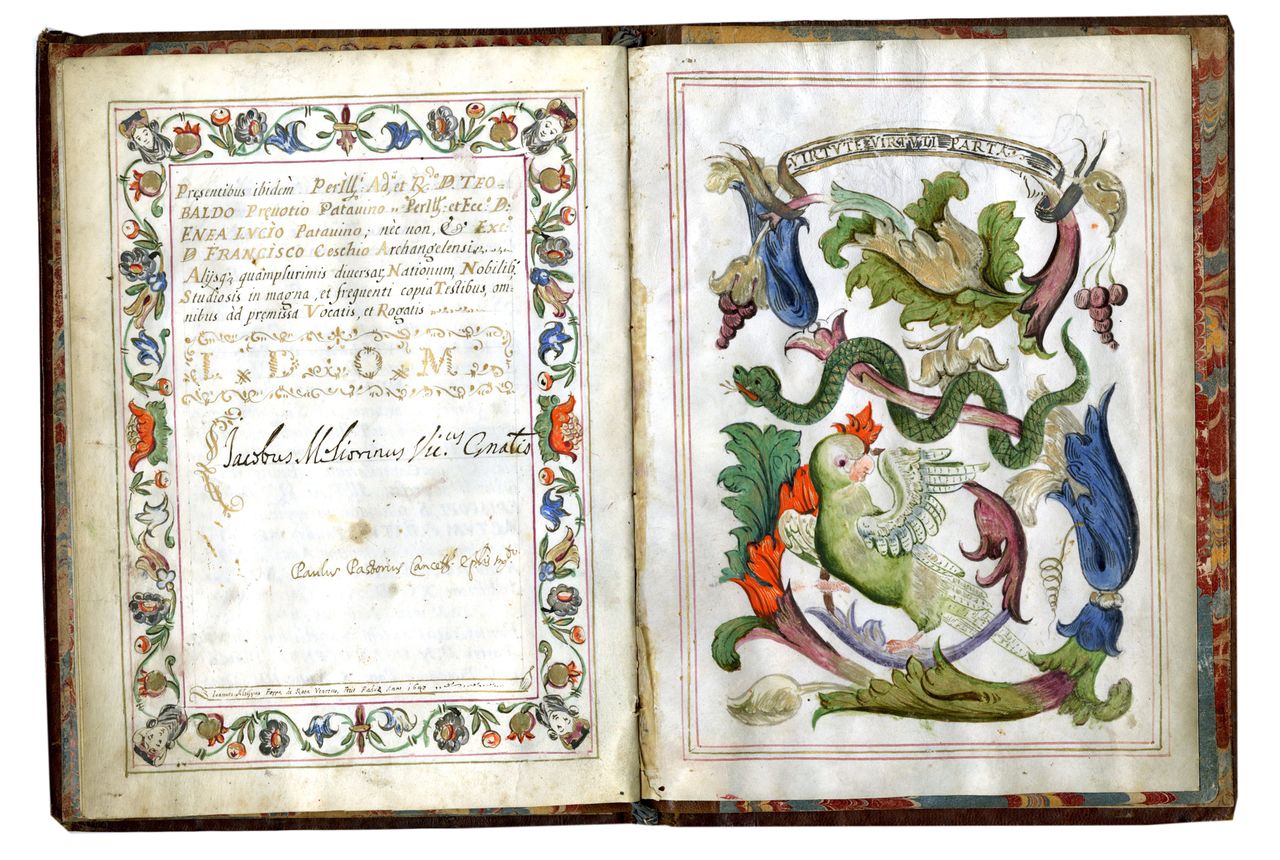 Pręsentibus ibidem Perill: Ad: et R: D. TEO-
BALDO Pręuotio Patauino, Perill: et Ecc: D:
ENEA LVCIO Patauino; nec non, & Exc:
D. FRANCISCO Ceschio Archangelensi
Alijsq; quamplurimis diuersar, Nationum, Nobilib,
Studiosis in magna, et frequenti copia Testibus, om=
nibus ad pręmissa Vocatis, et Rogatis
L. D. O. M.
Iacobus Meliorinus Vic.us Gnalis
Paulus Pastorius
Anno 1697
VIRTVTE VIRTVTI PARTA